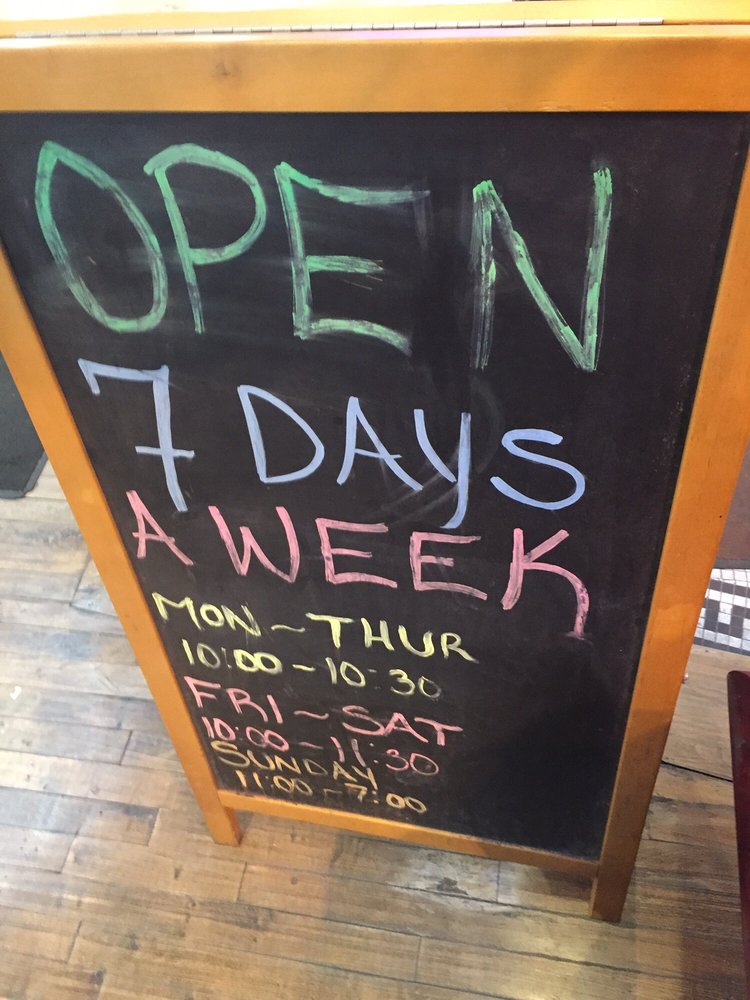 OPEN
7 DAYS
A WEEK
MON ~ THUR
10:00 - 10:30
FRI ~ SAT
10:00 - 11:30
SUNDAY
11:00 - 7:00